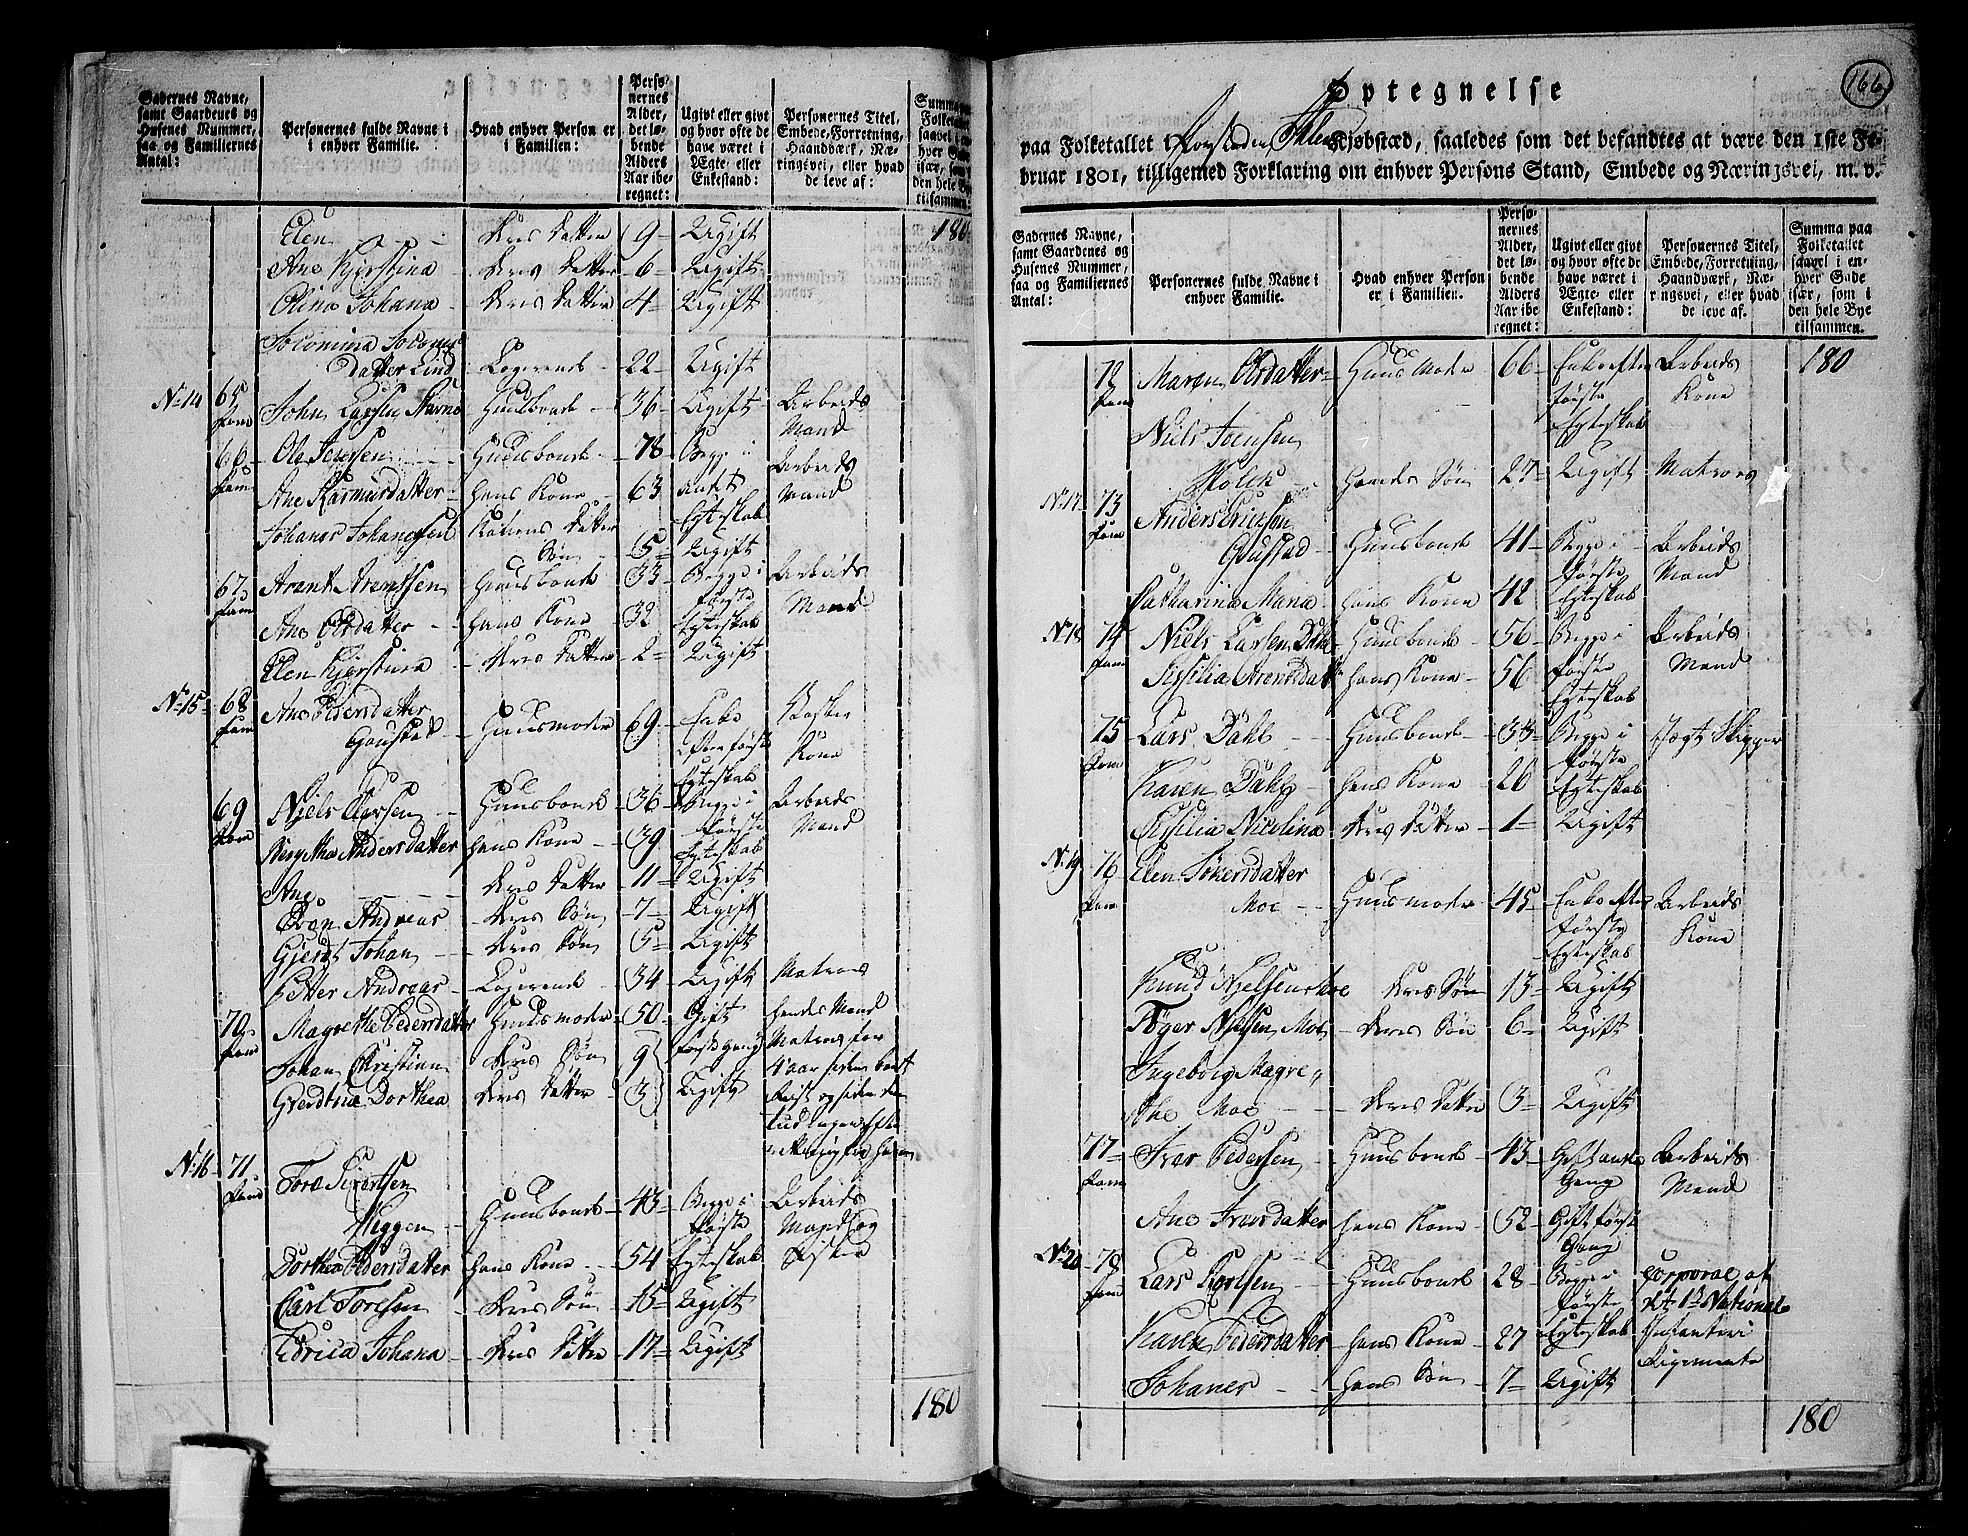 Gadernes Navne, samt Gaardenes og Husenes Nummer, saa og Familiernes Antal:
Personernes fulde Navne i enhver Familie.
Hvad enhver Person er i Familien:
Personernes Alder, det løbende Alders Aar iberegnet:
Ugivt eller givt og hvor ofte de have været i Ægte- eller Enkestand:
Personernes Titel, Embede, Forretning, Haandværk, Næringsvei, eller hvad de leve af:
Summa paa Folketallet saavel i enhver Gade især, som i den hele Bye tilsammen:
Elen - deres datter 9 Ugift 180
Ane Kjerstina - deres datter 6 Ugift
Olina Johana - deres datter 4 Ugift
datter Lind Logerende 22 Ugift
No 14 65 fam John Larsen Huusbonde 36 Ugift Arbeids Mand
66 fam Ole Huusbonde 78 Begge i Arbeids Mand
Ane Rasmusdatter hans Kone 63 andet Egteskab
Johanes Johanessen Konens datter Søn 15 Ugift
67 fam Arent Arentsen Huusbonde 33 Begge i første Arbeids Mand
Ane Olsdatter hans Kone 32 Egteskab
Elen Kjerstina deres datter 2 Ugift
No 15 68 fam Ane Pedersdatter
Gaustad Huusmoder 69 Enke efter første Egteskab Kone
69 fam Niels Huusbonde 36 Begge i første Arbeids Mand
Bergithe Andersdatter hans Kone 39 Egteskab
Ane deres datter 11 Ugift
Even Andreas deres Søn 7 Ugift
Gjert Johan deres Søn 5 Ugift
Petter Andreas Logerende 34 Ugift Matros
70 fam Magrethe Pedersdatter Huusmoder 50 Gift første gang hendes Mand Matros for
Johan Christian deres Søn 9
Gjerdtrue Dorthea deres datter 3 Ugift
No 16 71 fam Tore Sivertsen
Weggen Huusbonde 43 Begge i første Arbeids Mand og Fisker
Dorthea Pedersdatter hans Kone 54 Egteskab
Carl Toresen deres Søn 15 Ugift
Fedrica Johana deres datter 17 Ugift
180
166
Optegnelse
paa Folketallet i Kjøbstæd, saaledes som det befandtes at være den 1ste Februar 1801, tilligemed Forklaring om enhver Persons Stand, Embede og Næringsvei, m. v.
Gadernes Navne, samt Gaardenes og Husenes Nummer, saa og Familiernes Antal:
Personernes fulde Navne i enhver Familie.
Hvad enhver Person er i Familien.
Personernes Alder, det løbende Alders Aar iberegnet:
Ugivt eller givt og hvor ofte de have været i Ægte- eller Enkestand:
Personernes Titel, Embede, Forretning, Haandværk, Næringsvei, eller hvad de leve af.
Summa paa Folketallet saavel i enhver Gade især, som i den hele Bye tilsammen.
72 fam Maren Olsdatter Huus Moder 66 Enke efter første Egteskab Arbeids Kone 180
Niels Joensen
Holck hendes Søn 27 Ugift Matros
No 17 73 fam Anders Ericsen
Gaustad Huusbonde 41 Begge i første Arbeids Mand
Catharina Maria hans Kone 42 Egteskab
No 18 74 fam Niels Larsen Dahl Huusbonde 56 Begge i Arbeids Mand
Sisilia Arentsdatter hans Kone 56 første Egteskab
75 fam Lars Dahl Huusbonde 33 Begge i første Jægt Skipper
Karen Dahl hans Kone 26 Egteskab
Sisilia Nicolina deres datter 1 Ugift
No 19 76 fam Elen
Moe Huusmoder 45 Enke efter første Egteskab Arbeids Kone
Knud Nielsen Moe deres Søn 13 Ugift
Nielsen Moe deres Søn 6 Ugift
Ingeborg Magre
the Moe deres datter 3 Ugift
77 fam Iver Pedersen Huusbonde 43 Gift anden Gang Arbeids Mand
Ane Iversdatter hans Kone 52 Gift første Gang
No 20 78 fam Lars Huusbonde 28 Begge i første Corporal af det National
Karen Pedersdatter hans Kone 27 Egteskab Infanteri
Johanes hans Søn 7 Ugift Regimente
180